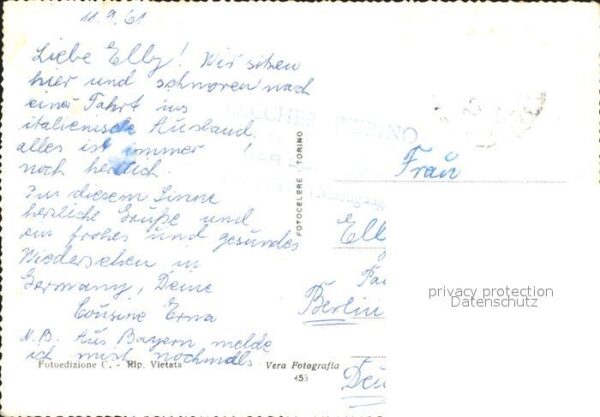 11.9.61
Liebe Elly! Wir sitzen
hier und schmoren nach
einer Fahrt ins
italienische Ausland,
alles ist immer
noch herrlich!
In diesem Sinne
herzliche Grüße und
ein frohes und gesundes
Wiedersehen in
Germany, Deine
Cousine Erna
N.B. Aus Bayern melde
ich mich nochmals
Fotoedizione C. - Rip. Vietata
Vera Fotografia
455
FOTOCELERE - TORINO
Frau
Ell
Berlin
privacy protection
Datenschutz